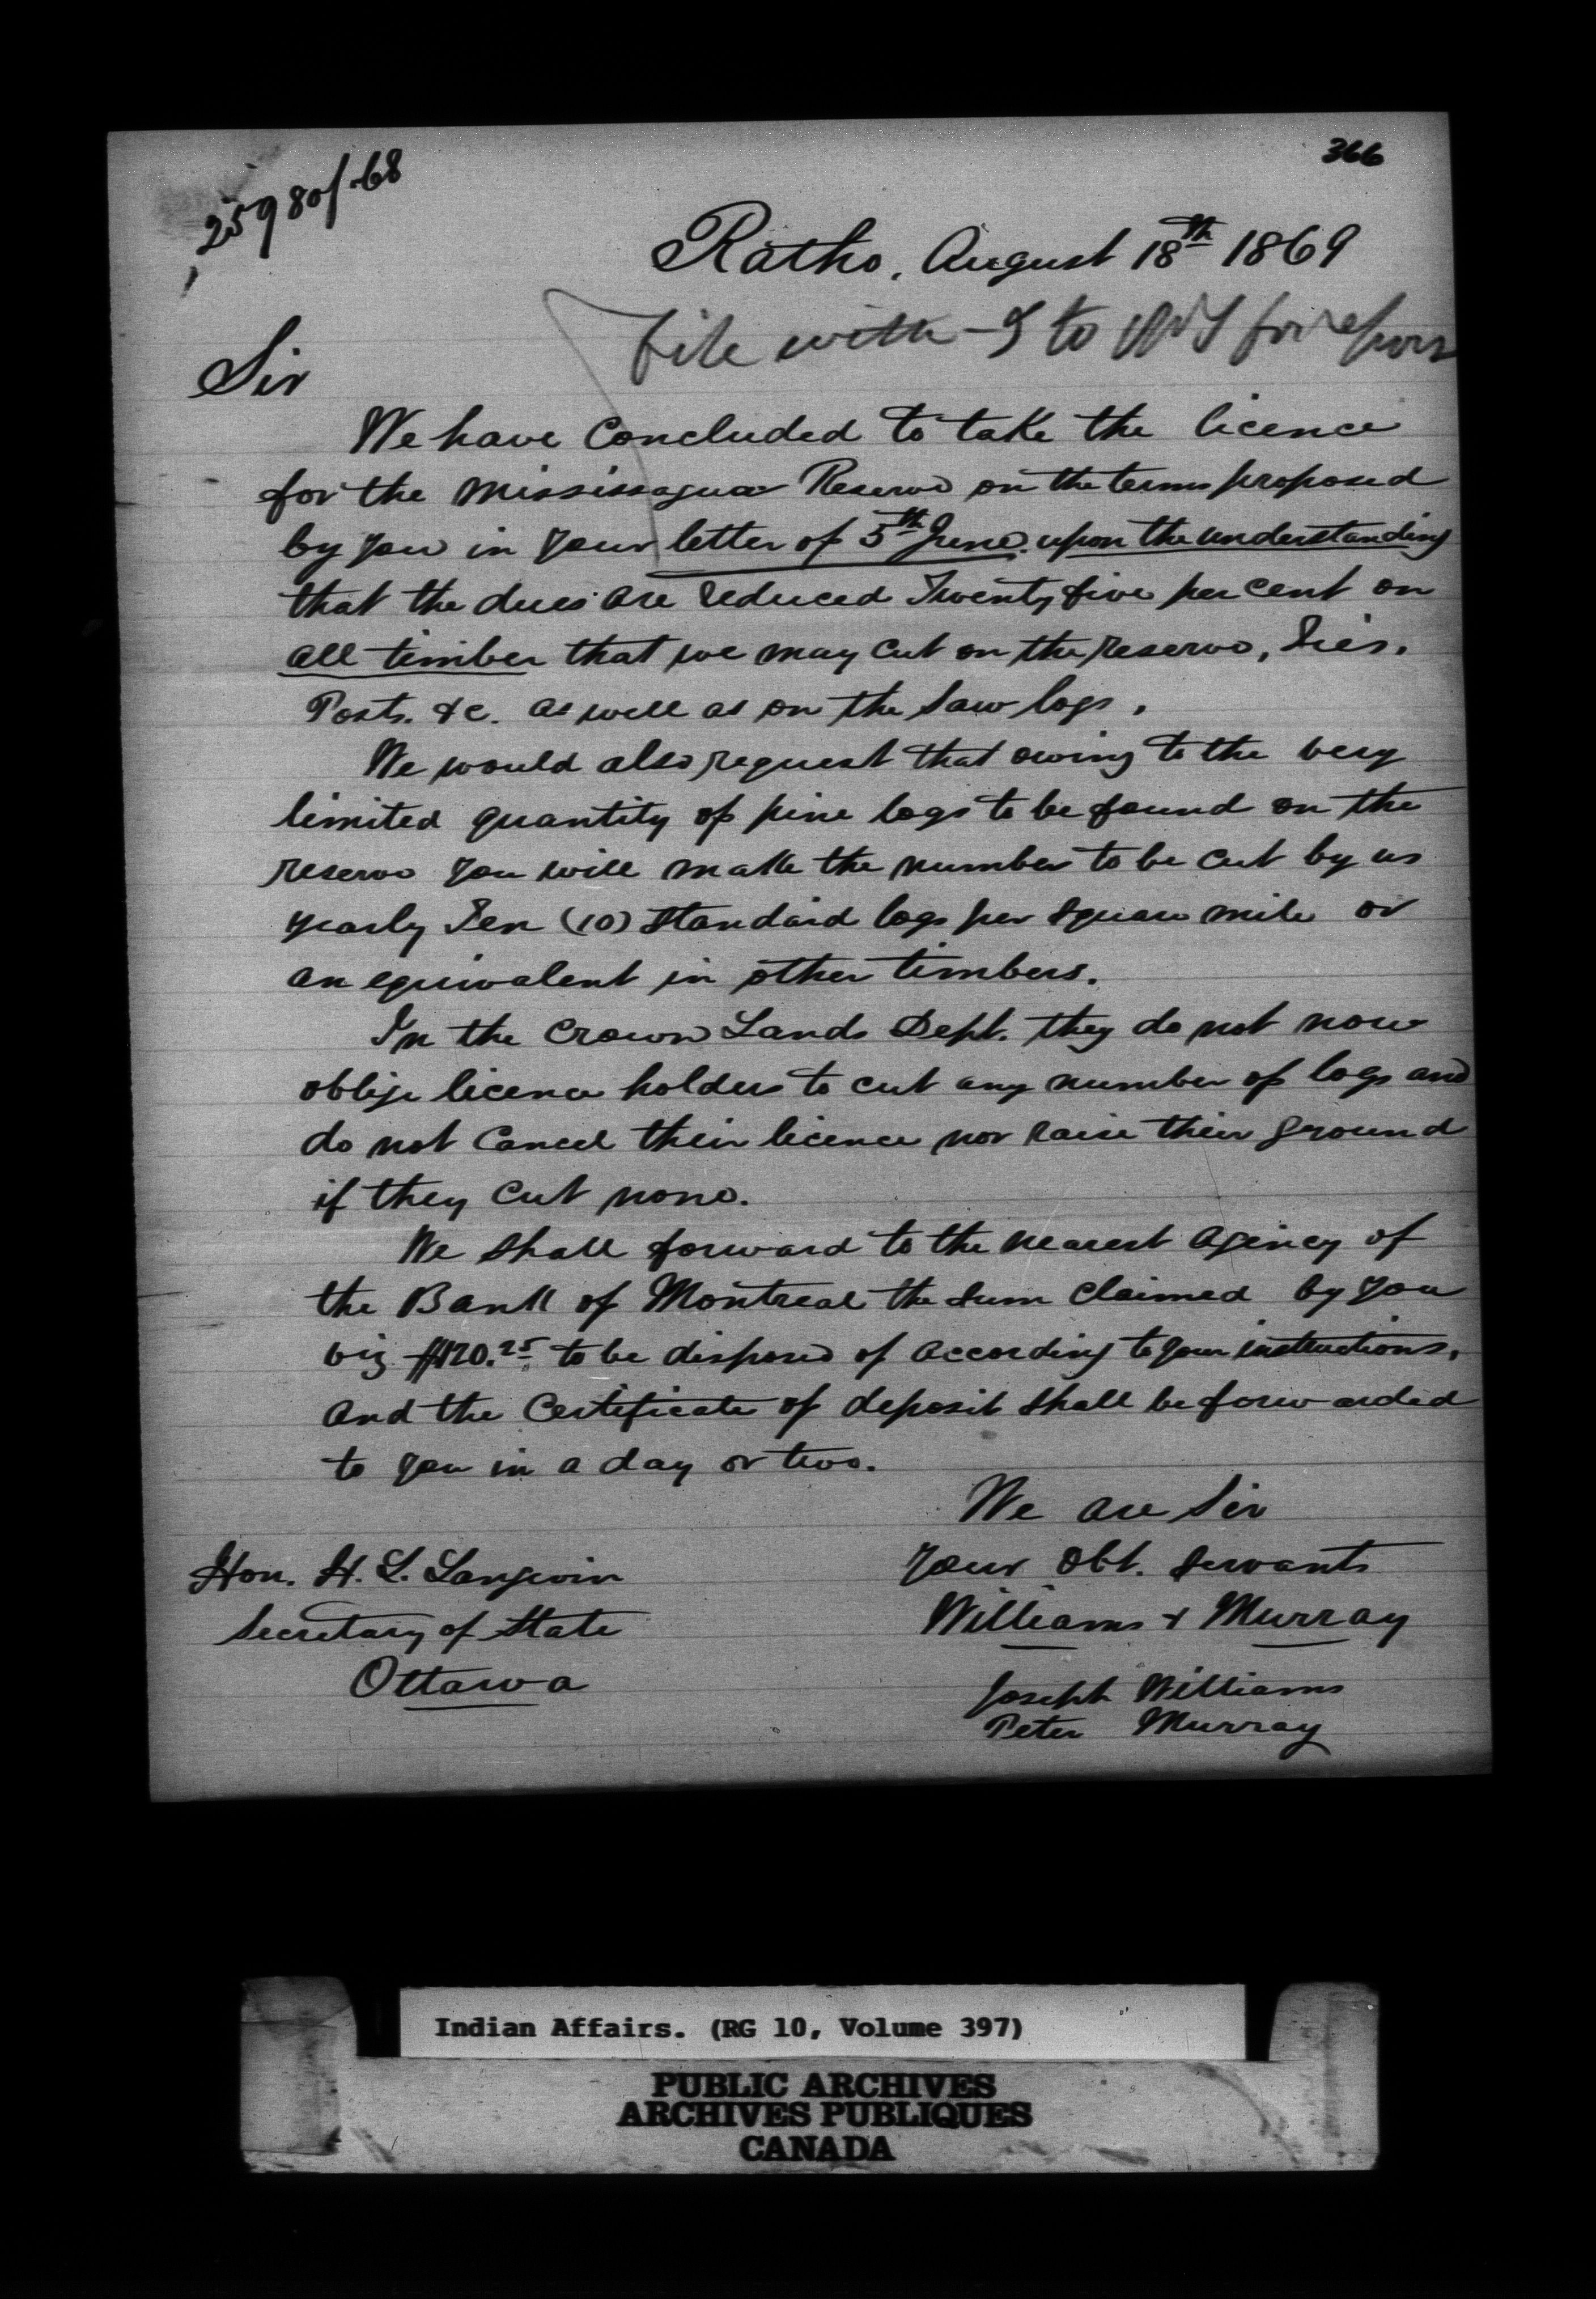 366
25980/.68
Ratho, August 18th 1869
File with & to for report
Sir
We have concluded to take the licence
for the Mississagua Reserve on the terms proposed
by you in your letter of 5th June. upon the understanding
that the dues are reduced Twenty five per cent on
all timber that we may cut on the reserve, Ties,
Posts. &c. as well as on the Saw logs.
We would also request that owing to the very
limited quantity of pine logs to be found on the
reserve you will make the number to be cut by us
yearly Ten (10) Standard logs per square mile or
an equivalent in other timbers.
In the Crown Lands Dept. they do not now
oblige licence holders to cut any number of logs and
do not cancel their licence nor raise their ground
if they cut none.
We shall forward to the nearest agency of
the Bank of Montreal the sum claimed by you
viz $120.25 to be disposed of according to your instructions,
and the Certificate of deposit shall be forwarded
to you in a day or two.
We are Sir
Your Obt. Servants
Williams & Murray
Joseph Williams
Peter Murray
Hon. H. L. Langevin
Secretary of State
Ottawa
Indian Affairs. (RG 10, Volume 397)
PUBLIC ARCHIVES
ARCHIVES PUBLIQUES
CANADA